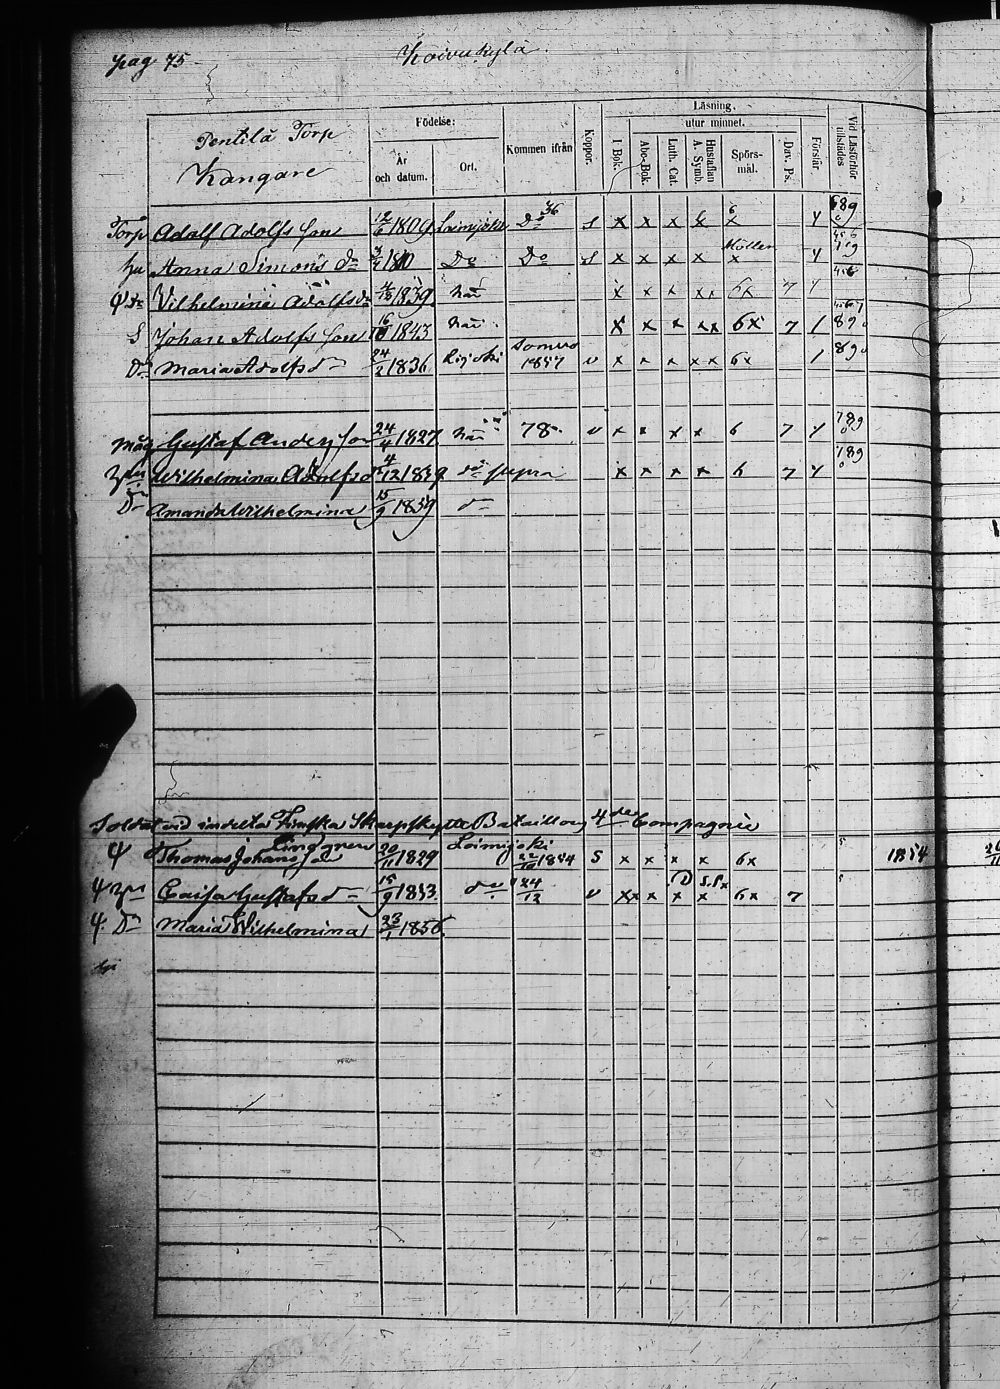 pag 75
Koivukylä
Pentilä Torp
Kangare
Födelse:
År och datum.
Ort.
Kommen ifrån
Koppor.
Läsning,
utur minnet.
I Bok.
Abc-Bok.
Luth. Cat.
Hustaflan A. Symb.
Spörsmål.
Dav. Ps.
Förstår
Vid Läsförhör tillstädes
Torp Adolf Adolfs son 12/6 1809 Loimijoki Do 36 s x x x x 6 x 689
hu Anna Simons dr 1810 Do Do s x x x x x
Dr Vilhelmina Adolfs dr 1839 här x x x x x 6x 7
S Johan Adolfs son 16 1843 här x x x x x 6x 7 1 89
Dr Maria Adolfs dr 24/2 1836 Somero 1857 v x x x x x 6x 1 89
Måg Gustaf Anders son 24/4 1827 här 78 v x x x x 6 7 789
Wilhelmina Adolfs dr 4/12 1839 supra x x x x 6 7 789
Dr Amanda Wilhelmina 15/9 1859
Soldat vid indelta Finska Skarpskytte Bataillon 4de Compagnie
Lindgren
Thomas Johans son 20/11 1829 Loimijoki 1854 S x x x x 6x 1854
Caisa Gustafs dr 15/9 1833 24/12 v xx x x x 6x 7
4. Dr Maria Wilhelmina 23/1 1856